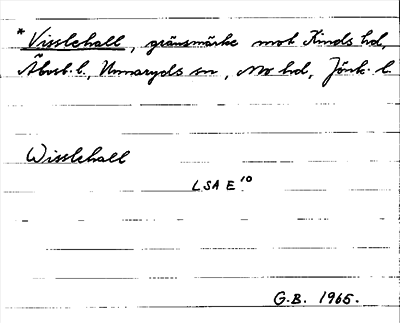 * Visslehall, gränsmärke mot Kinds hd,
Älvsb. l., Unnaryds sn, Mo hd, Jönk. l.
Wisslehall
LSA E 10
G.B. 1965.